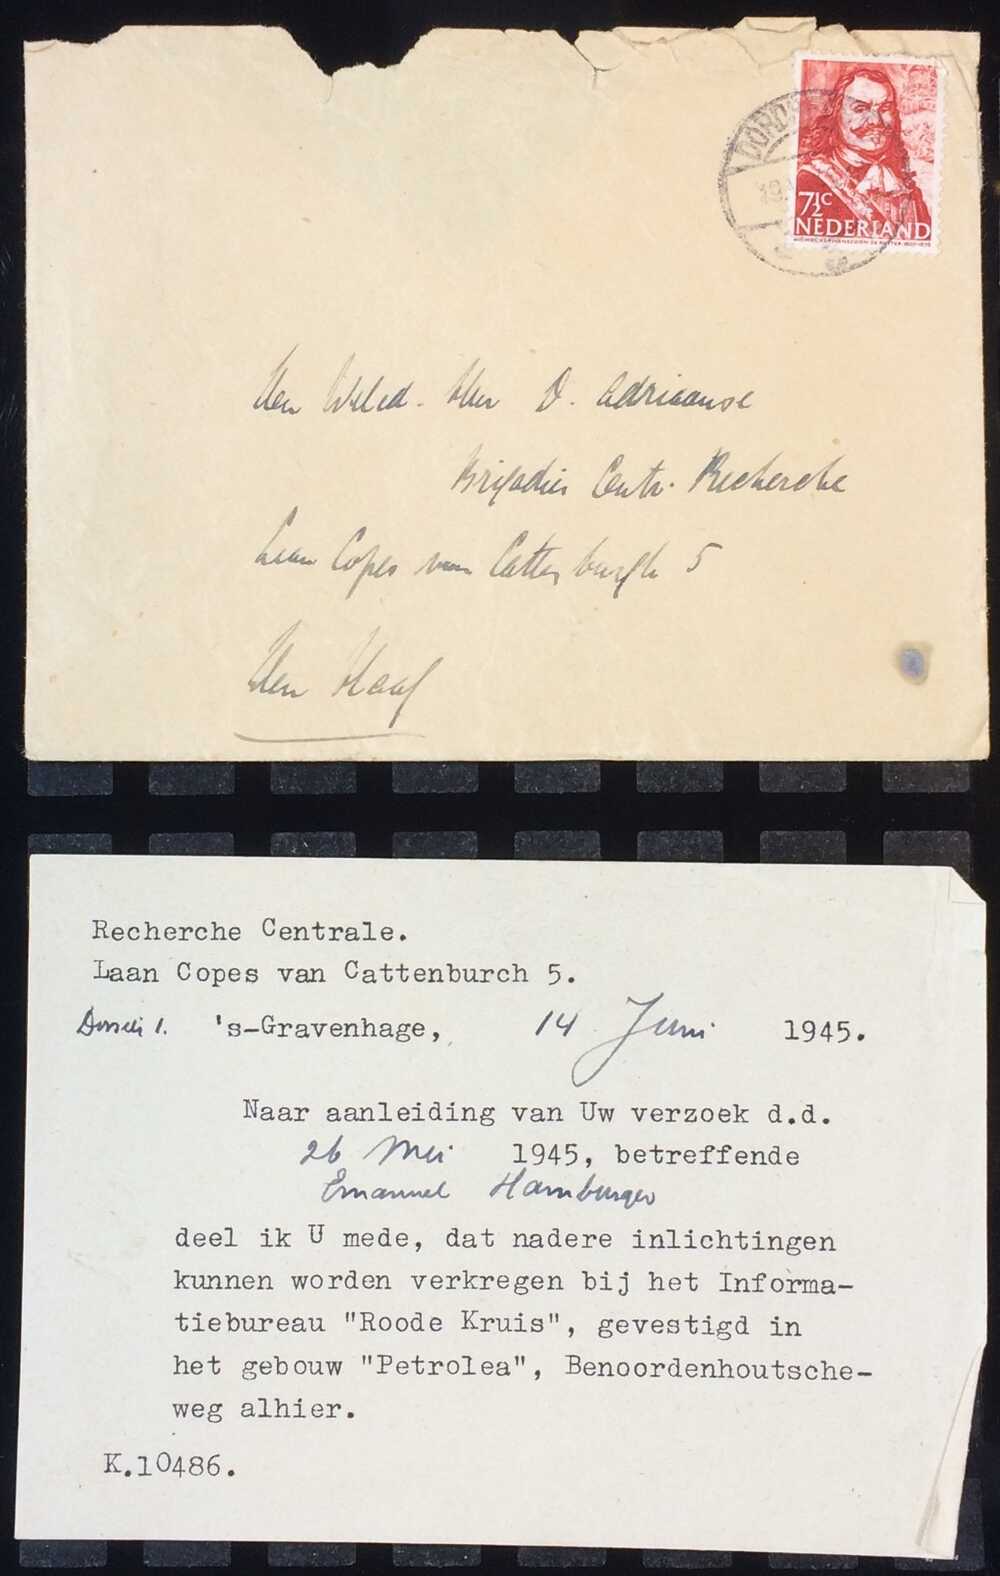 DORDRE
7½c
NEDERLAND
Den Weled. Heer D. Adriaanse
Brigadier Centr. Recherche
Laan Copes van Cattenburgh 5
Den Haag
Recherche Centrale.
Laan Copes van Cattenburch 5.
's-Gravenhage, 14 Juni 1945.
Naar aanleiding van Uw verzoek d.d.
26 Mei 1945, betreffende
Emanuel Hamburger
deel ik U mede, dat nadere inlichtingen
kunnen worden verkregen bij het Informa-
tiebureau "Roode Kruis", gevestigd in
het gebouw "Petrolea", Benoordenhoutsche-
weg alhier.
K.10486.